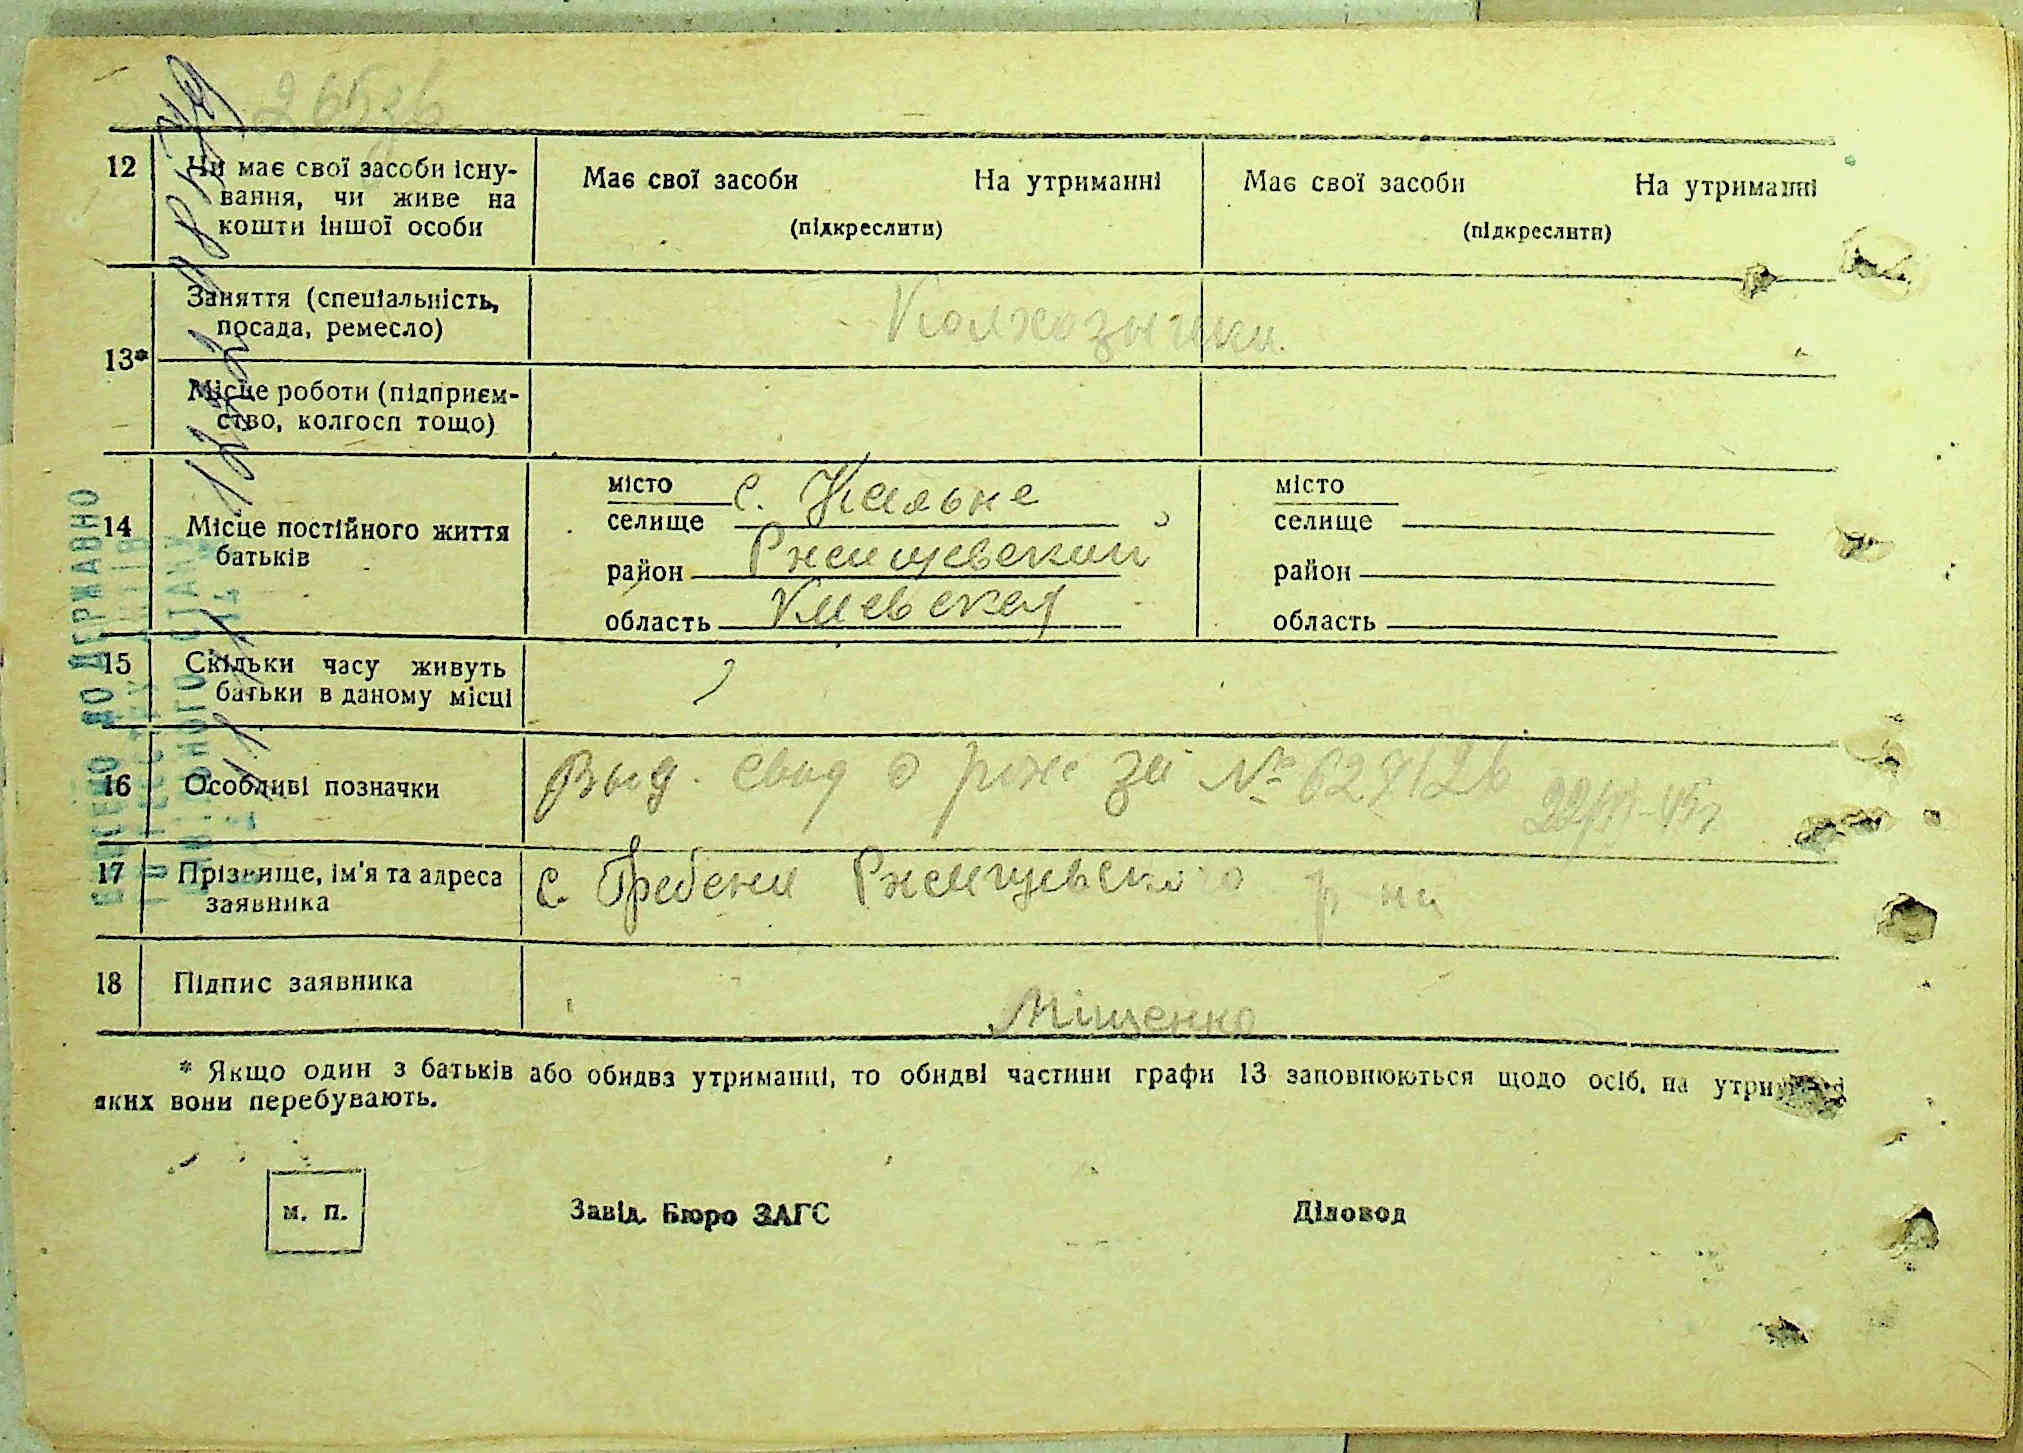 265зв
12 Чи має свої засоби існу-
вання, чи живе на
кошти іншої особи
Має свої засоби На утриманні
(підкреслити)
Має свої засоби На утриманні
(підкреслити)
13*
Заняття (спеціальність,
посада, ремесло)
Колхозники
Місце роботи (підприєм-
ство, колгосп тощо)
14 Місце постійного життя
батьків
місто
селище с. Кальне
район Ржищевский
область Киевская
місто
селище
район
область
15 Скільки часу живуть
батьки в даному місці
16 Особливі позначки
Выд. свид о рож за №
17 Прізвище, ім'я та адреса
заявника
с. Гребени Ржищевского р-на
18 Підпис заявника
Міщенко
* Якщо один з батьків або обидва утриманці, то обидві частини графи 13 заповнюються щодо осіб, на
яких вони перебувають.
м. п.
Завід. Бюро ЗАГС
Діловод
ДО ДЕРЖАВНО